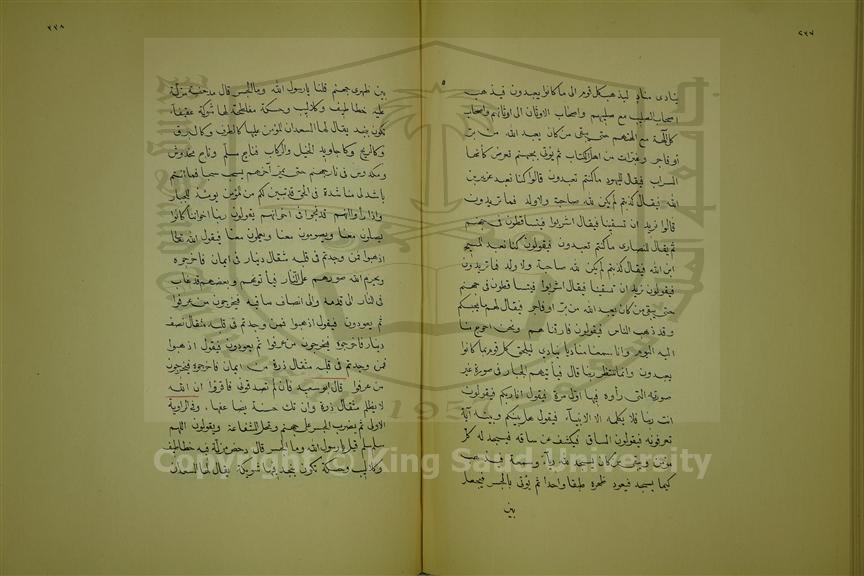 ٢٢٧
ينادى مناد ليذهب كل قوم الى ما كانوا يعبدون فيذهب
اصحاب الصليب مع صليبهم واصحاب الاوثان الى اوثانهم واصحاب
كل آلهة مع آلهتهم حتى يبقى من كان يعبد الله من بر
او فاجر وغبرات من اهل الكتاب ثم يؤتى بجهنم تعرض كأنها
السراب فيقال لليهود ما كنتم تعبدون قالوا كنا نعبد عزير بن
الله فيقال كذبتم لم يكن لله صاحبة ولا ولد فما تريدون
قالوا نريد ان تسقينا فيقال اشربوا فيتساقطون فى جهنم
ثم يقال للنصارى ما كنتم تعبدون فيقولون كنا نعبد المسيح
ابن الله فيقال كذبتم لم يكن لله صاحبة ولا ولد فما تريدون
فيقولون نريد ان تسقينا فيقال اشربوا فيتساقطون فى جهنم
حتى يبقى من كان يعبد الله من بر او فاجر فيقال لهم ما يحبسكم
وقد ذهب الناس فيقولون فارقناهم ونحن احوج منا
اليه اليوم وانا سمعنا مناديا ينادى ليلحق كل قوم بما كانوا
يعبدون وانما ننتظر ربنا قال فيأتيهم الجبار فى صورة غير
صورته التى رأوه فيها اول مرة فيقول انا ربكم فيقولون
انت ربنا فلا يكلمه الا الانبيآء فيقول هل بينكم وبينه آية
تعرفونه فيقولون الساق فيكشف عن ساقه فيسجد له كل
مؤمن ويبقى من كان يسجد لله ريآء وسمعة فيذهب
كيما يسجد فيعود ظهره طبقا واحدا ثم يؤتى بالجسر فيجعل
بين
٢٢٨
بين ظهرى جهنم قلنا يا رسول الله وما الجسر قال مدحضة مزلة
عليه خطاطيف وكلاليب وحسكة مفلطحة لها شوكة عقيفآء
تكون بنجد يقال لها السعدان المؤمن عليها كالطرف وكالبرق
وكالريح وكاجاويد الخيل والركاب فناج مسلم وناج مخدوش
ومكدوس فى نار جهنم حتى يمر آخرهم يسحب سحبا فما انتم
باشد لى مناشدة فى الحق قد تبين لكم من المؤمن يومئذ للجبار
واذا رأوا انهم قد نجوا فى اخوانهم يقولون ربنا اخواننا كانوا
يصلون معنا ويصومون معنا ويعملون معنا فيقول الله تعا
اذهبوا فمن وجدتم فى قلبه مثقال دينار من ايمان فاخرجوه
ويحرم الله صورهم على النار فيأتونهم وبعضهم قد غاب
فى النار الى قدمه والى انصاف ساقيه فيخرجون من عرفوا
ثم يعودون فيقول اذهبوا فمن وجدتم فى قلبه مثقال نصف
دينار فاخرجوه فيخرجون من عرفوا ثم يعودون فيقول اذهبوا
فمن وجدتم فى قلبه مثقال ذرة من ايمان فاخرجوه فيخرجون
من عرفوا قال ابو سعيد فان لم تصدقونى فاقرؤا ان الله
لا يظلم مثقال ذرة وان تك حسنة يضاعفها، وفى الرواية
الاولى ثم يضرب الجسر على جهنم وتحل الشفاعة ويقولون اللهم
سلم سلم قيل يا رسول الله وما الجسر قال دحض مزلة فيه خطاطيف
وكلاليب وحسكة تكون بنجد فيها شويكة يقال لها السعدان
Copyright © King Saud University
1957